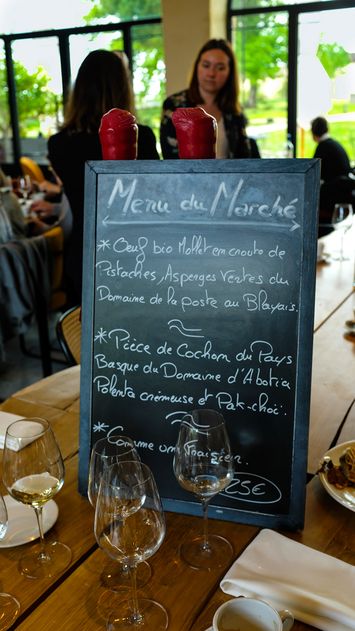 Menu du Marché
* Œuf bio Mollet en croute de
Pistaches, Asperges Vertes du
Domaine de la poste au Blayais.
* Pièce de Cochon du Pays
Basque du Domaine d'Abotia
Polenta crémeuse et Pak-choï.
* Comme un Fraisier.
25€